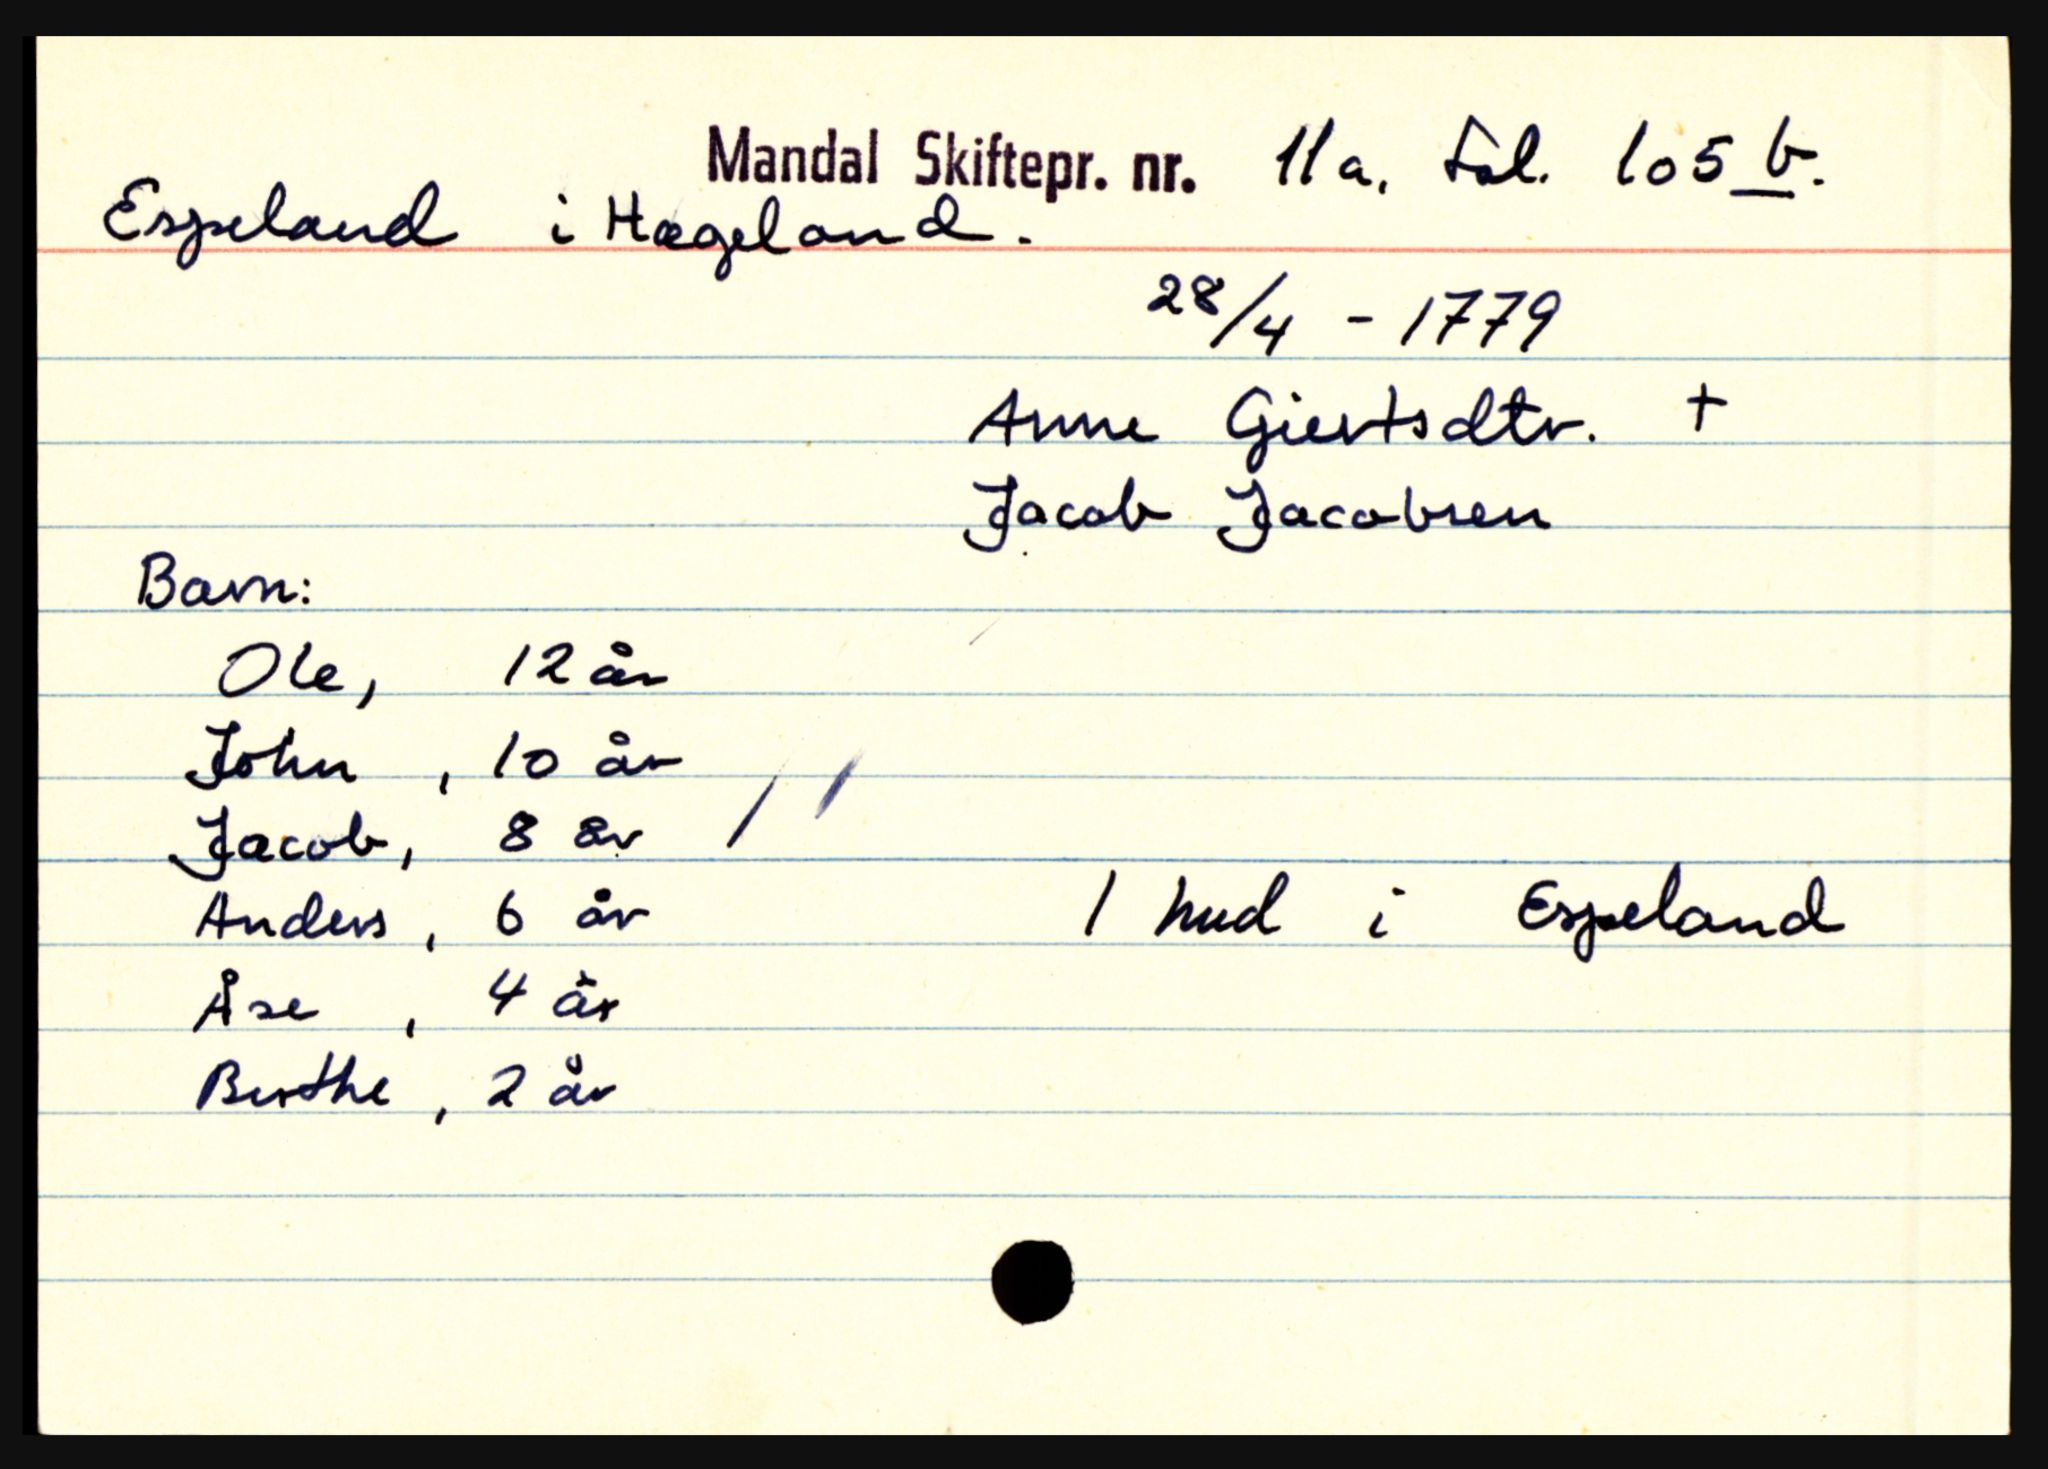 Mandal Skiftepr. nr. 11a. Fol. 105 b.
Espeland i Hægeland.
28/4 - 1779
Anne Giertsdtr. +
Jacob Jacobsen
Barn:
Ole, 12 år
John, 10 år
Jacob, 8 år
Anders, 6 år
1 hud i Espeland
Åse, 4 år
Birthe, 2 år